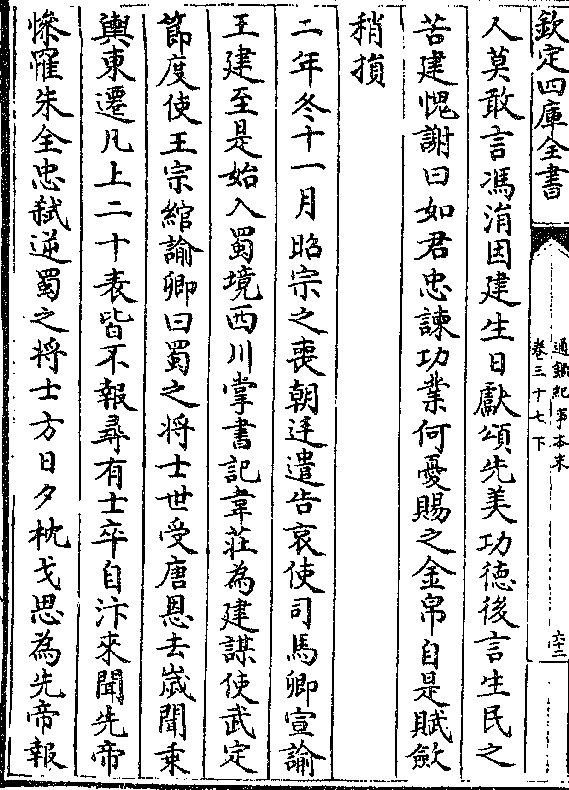 欽定四庫全書
通鑑紀事本末
卷三十七下
六三
人莫敢言馮涓因建生日獻頌先美功德後言生民之
苦建愧謝曰如君忠諫功業何憂賜之金帛自是賦斂
稍損
二年冬十一月昭宗之喪朝廷遣告哀使司馬卿宣諭
王建至是始入蜀境西川掌書記韋莊為建謀使武定
節度使王宗綰諭卿曰蜀之將士世受唐恩去歲聞乗
輿東遷凡上二十表皆不報尋有士卒自汴來聞先帝
慘罹朱全忠弑逆蜀之將士方日夕枕戈思為先帝報